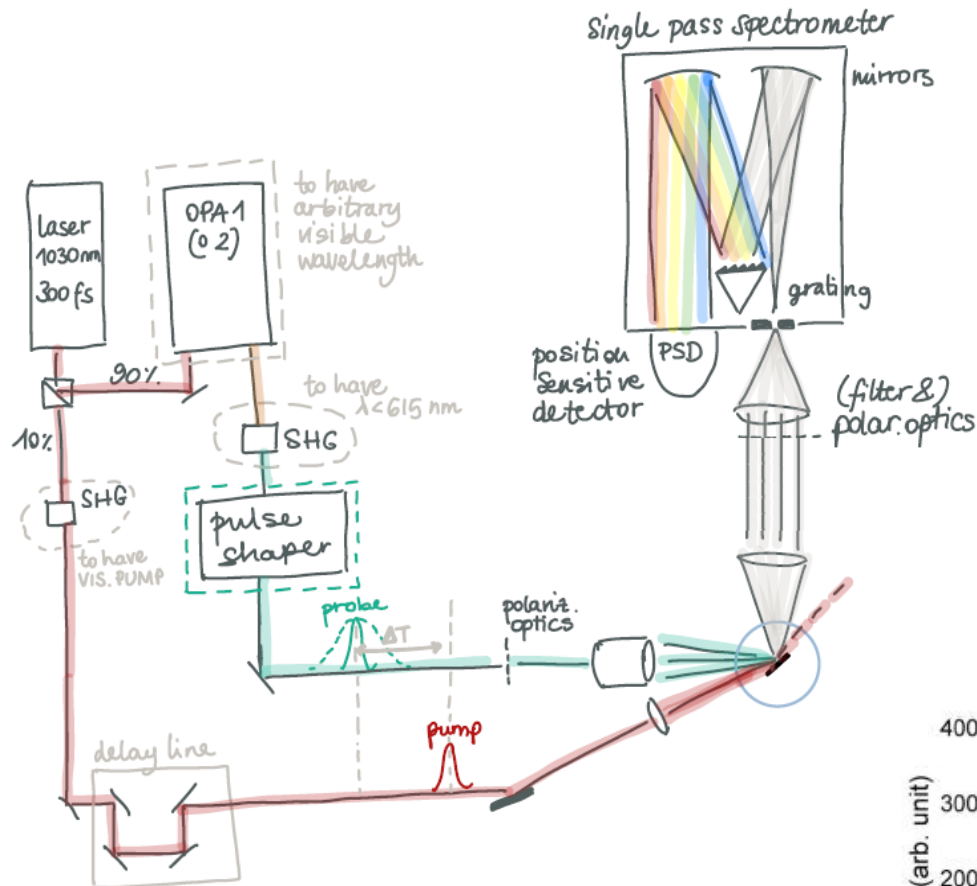 Single pass spectrometer
mirrors
grating
PSD
position
sensitive
detector
(filter &)
polar. optics
laser
1030nm
300fs
OPA 1
(o 2)
to have
arbitrary
visible
wavelength
90%
10%
to have
λ<615 nm
SHG
SHG
to have
VIS. PUMP
pulse
shaper
probe
ΔT
polariz.
optics
pump
delay line
400
300
200
(arb. unit)